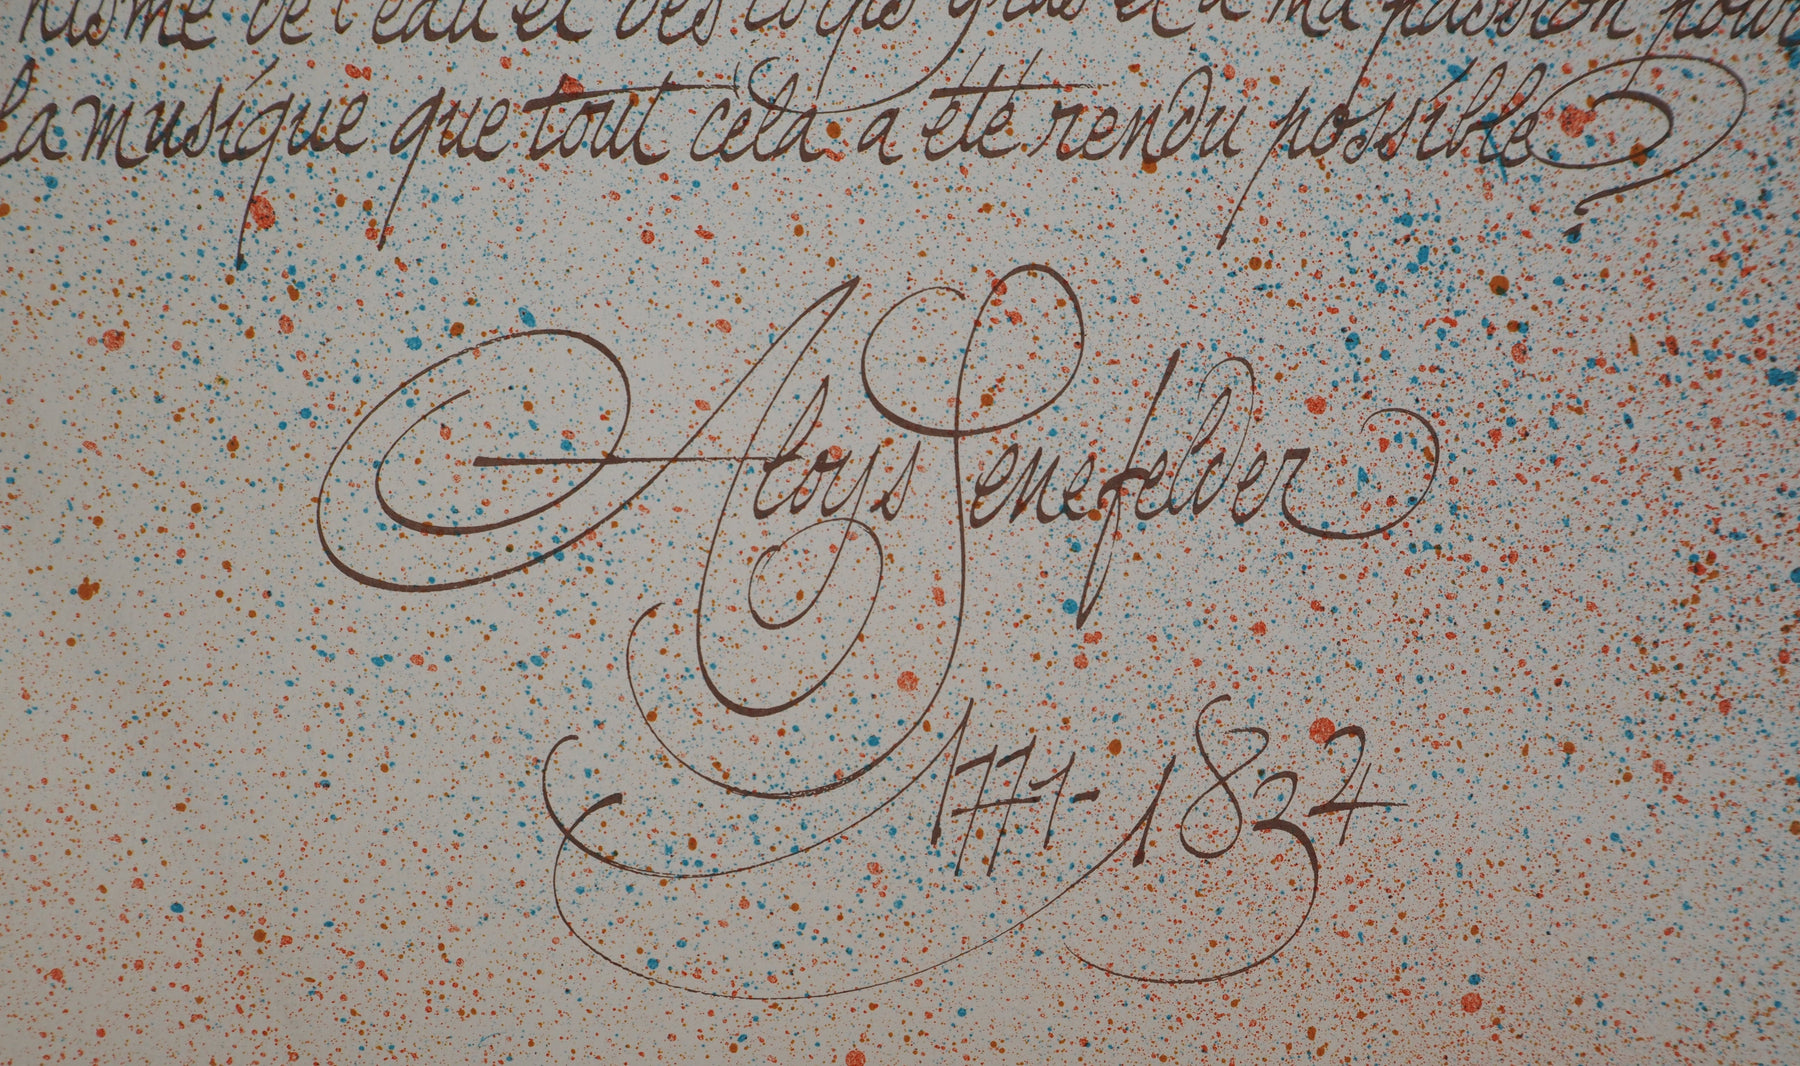 nisme de l'eau et des corps gras et à ma passion pour
la musique que tout cela a été rendu possible
Aloys Senefelder
1771-1834